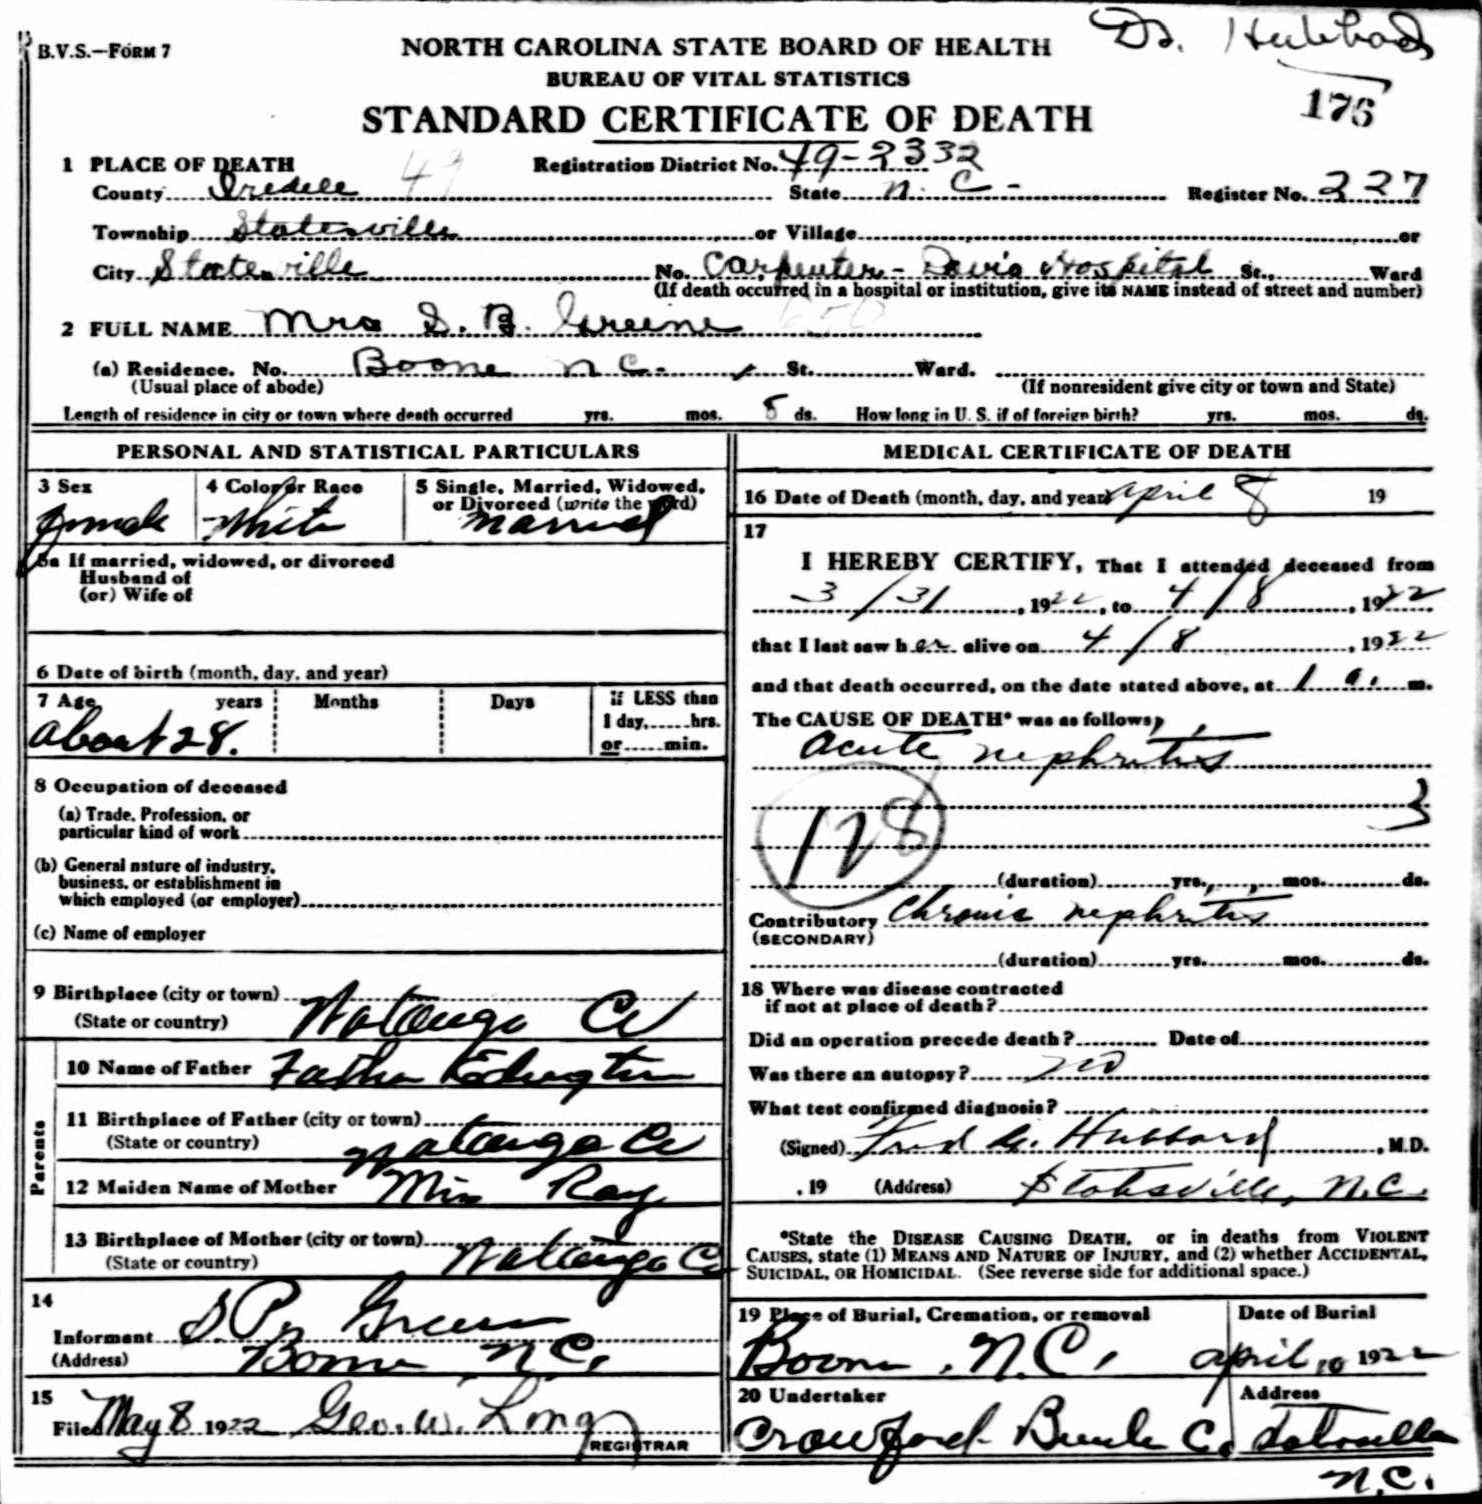 Dr. Hubbard
B.V.S.—FORM 7
NORTH CAROLINA STATE BOARD OF HEALTH
BUREAU OF VITAL STATISTICS
176
STANDARD CERTIFICATE OF DEATH
1 PLACE OF DEATH 49 Registration District No. 49-2332
County Iredell State N. C- Register No. 227
Township Statesville or Village or
City Statesville No. Carpenter-Davis Hospital St., Ward
(If death occurred in a hospital or institution, give its NAME instead of street and number)
2 FULL NAME Mrs S. B. Greene 650
(a) Residence. No. Boone N C. St. Ward.
(Usual place of abode) (If nonresident give city or town and State)
Length of residence in city or town where death occurred yrs. mos. 8 ds. How long in U. S. if of foreign birth? yrs. mos. ds.
PERSONAL AND STATISTICAL PARTICULARS
3 Sex 4 Color or Race 5 Single, Married, Widowed,
or Divorced (write the word)
female White Married
5a If married, widowed, or divorced
Husband of
(or) Wife of
6 Date of birth (month, day, and year)
7 Age years Months Days If LESS than
1 day, hrs.
or min.
about 28.
8 Occupation of deceased
(a) Trade, Profession, or
particular kind of work
(b) General nature of industry,
business, or establishment in
which employed (or employer)
(c) Name of employer
9 Birthplace (city or town)
(State or country) Watauga Co
Parents
10 Name of Father
11 Birthplace of Father (city or town)
(State or country) Watauga Co
12 Maiden Name of Mother Miss Ray
13 Birthplace of Mother (city or town)
(State or country) Watauga Co
14
Informant Greene
(Address) Boone N.C.
15
Filed May 8 1922 Geo. W. Long
REGISTRAR
MEDICAL CERTIFICATE OF DEATH
16 Date of Death (month, day, and year) April 8 19
17
I HEREBY CERTIFY, That I attended deceased from
3/31, 1922, to 4/8, 1922
that I last saw her alive on 4/8, 1922
and that death occurred, on the date stated above, at 1 a. m.
The CAUSE OF DEATH* was as follows:
Acute nephritis
3
128
(duration) yrs. mos. ds.
Contributory Chronic nephritis
(SECONDARY)
(duration) yrs. mos. ds.
18 Where was disease contracted
if not at place of death?
Did an operation precede death? Date of
Was there an autopsy? no
What test confirmed diagnosis?
(Signed) Hubbard, M.D.
, 19 (Address) Statesville, N.C.
*State the DISEASE CAUSING DEATH, or in deaths from VIOLENT
CAUSES, state (1) MEANS AND NATURE OF INJURY, and (2) whether ACCIDENTAL,
SUICIDAL, OR HOMICIDAL. (See reverse side for additional space.)
19 Place of Burial, Cremation, or removal Date of Burial
Boone, N.C. April 10 1922
20 Undertaker Address
Crawford- Bunch Co. Statesville
N.C.